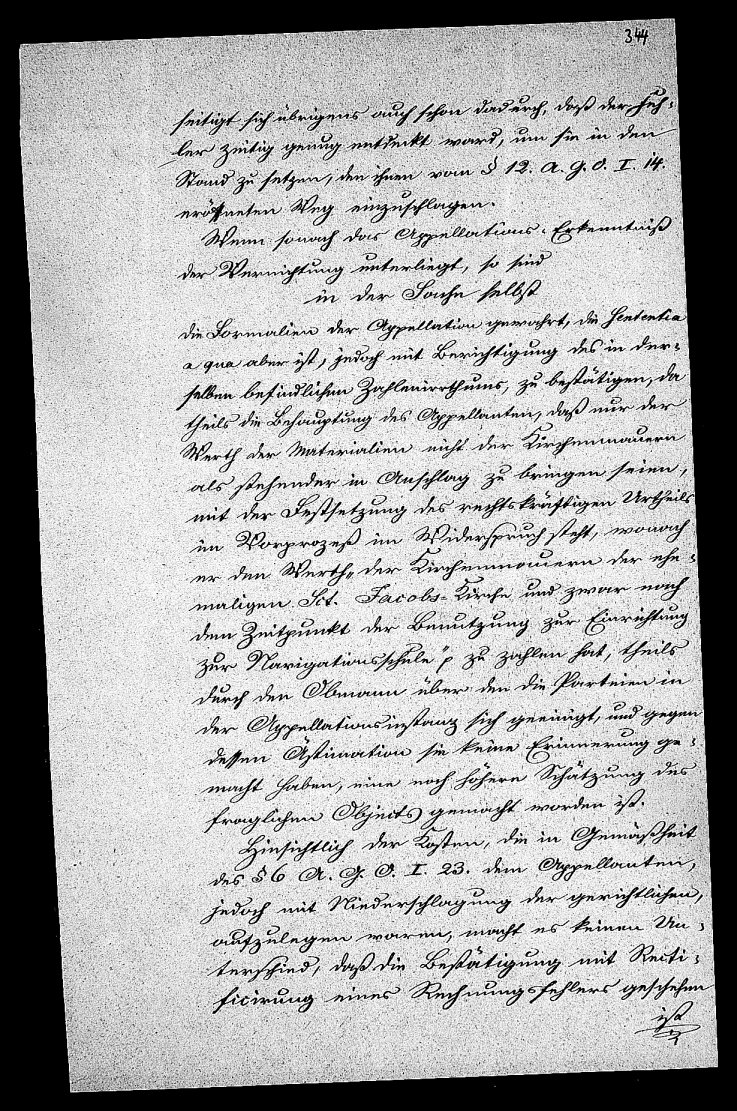 344
seitigt sich übrigens auch schon dadurch, daß der Feh-
ler zeitig genug entdeckt ward, um sie in den
Stand zu setzen, den ihnen vom § 12. A. G. O. I. 14.
eröffneten Weg einzuschlagen.
Wenn sonach das Appellations-Erkenntniß
der Vernichtung unterliegt, so sind
in der Sache selbst
die Formalien der Appellation gewahrt, die Sententia
a qua aber ist, jedoch mit Berichtigung des in der-
selben befindlichen Zahlenirrthums, zu bestätigen, da
theils die Behauptung des Appellanten, daß nur der
Werth der Materialien nicht der Kirchenmauern
als stehender in Anschlag zu bringen seien,
mit der Festsetzung des rechtskräftigen Urtheils
im Vorprozeß im Widerspruch steht, wonach
er den Werth „der Kirchenmauern der ehe-
maligen Sct. Jacobs-Kirche und zwar nach
dem Zeitpunkt der Benutzung zur Einrichtung
zur Navigationsschule“ zu zahlen hat, theils
durch den Obmann über den die Parteien in
der Appellationsinstanz sich geeinigt, und gegen
dessen Ästimation sie keine Erinnerung ge-
macht haben, eine noch höhere Schätzung des
fraglichen Objects gemacht worden ist.
Hinsichtlich der Kosten, die in Gemäßheit
des § 6 A. G. O. I. 23. dem Appellanten,
jedoch mit Niederschlagung der gerichtlichen,
aufzulegen waren, macht es keinen Un-
terschied, daß die Bestätigung mit Recti-
ficirung eines Rechnungsfehlers geschehen
ist